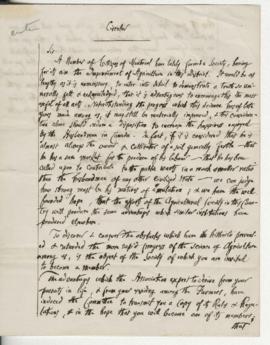 Circular
Sir
A Number of Citizens of Montreal have lately formed a Society, having
for its aim the improvement of Agriculture in this District. It would be as
lengthy as it is unnecessary, to enter into detail to demonstrate a truth so uni-
versally felt & acknowledged, that it is advantageous to encourage this the most
useful of all arts. Notwithstanding the progress which this science has of late
years made among us, it may still be materially improved, & this considera-
tion alone should excite a disposition to encrease the happiness enjoyed
by the Husbandman in Canada. In fact, if it is considered that he is
almost always the owner & Cultivator of a soil generally fertile — that
he has a sure market for the produce of his labour — that he has been
called upon to contribute to the public wants in a much smaller ratio
than the Husbandman of any other Civilized State — we can judge
how strong must be his motives of emulation; & we have the well
founded hope, that the effort of the Agricultural Society in this Coun-
try will produce the same advantages which similar institutions have
produced elsewhere.
To discover & conquer the obstacles which have hitherto prevented
& retarded the more rapid progress of the Science of Agriculture
among us, is the object of the Society of which you are invited
to become a member.
The advantage which the Association expect to derive from your
pursuits in life, & from your residing among the Farmers, have
induced the Committee to transmit you a Copy of its Rules & Regu-
lations, & in the hope that you will become one of its members,
that